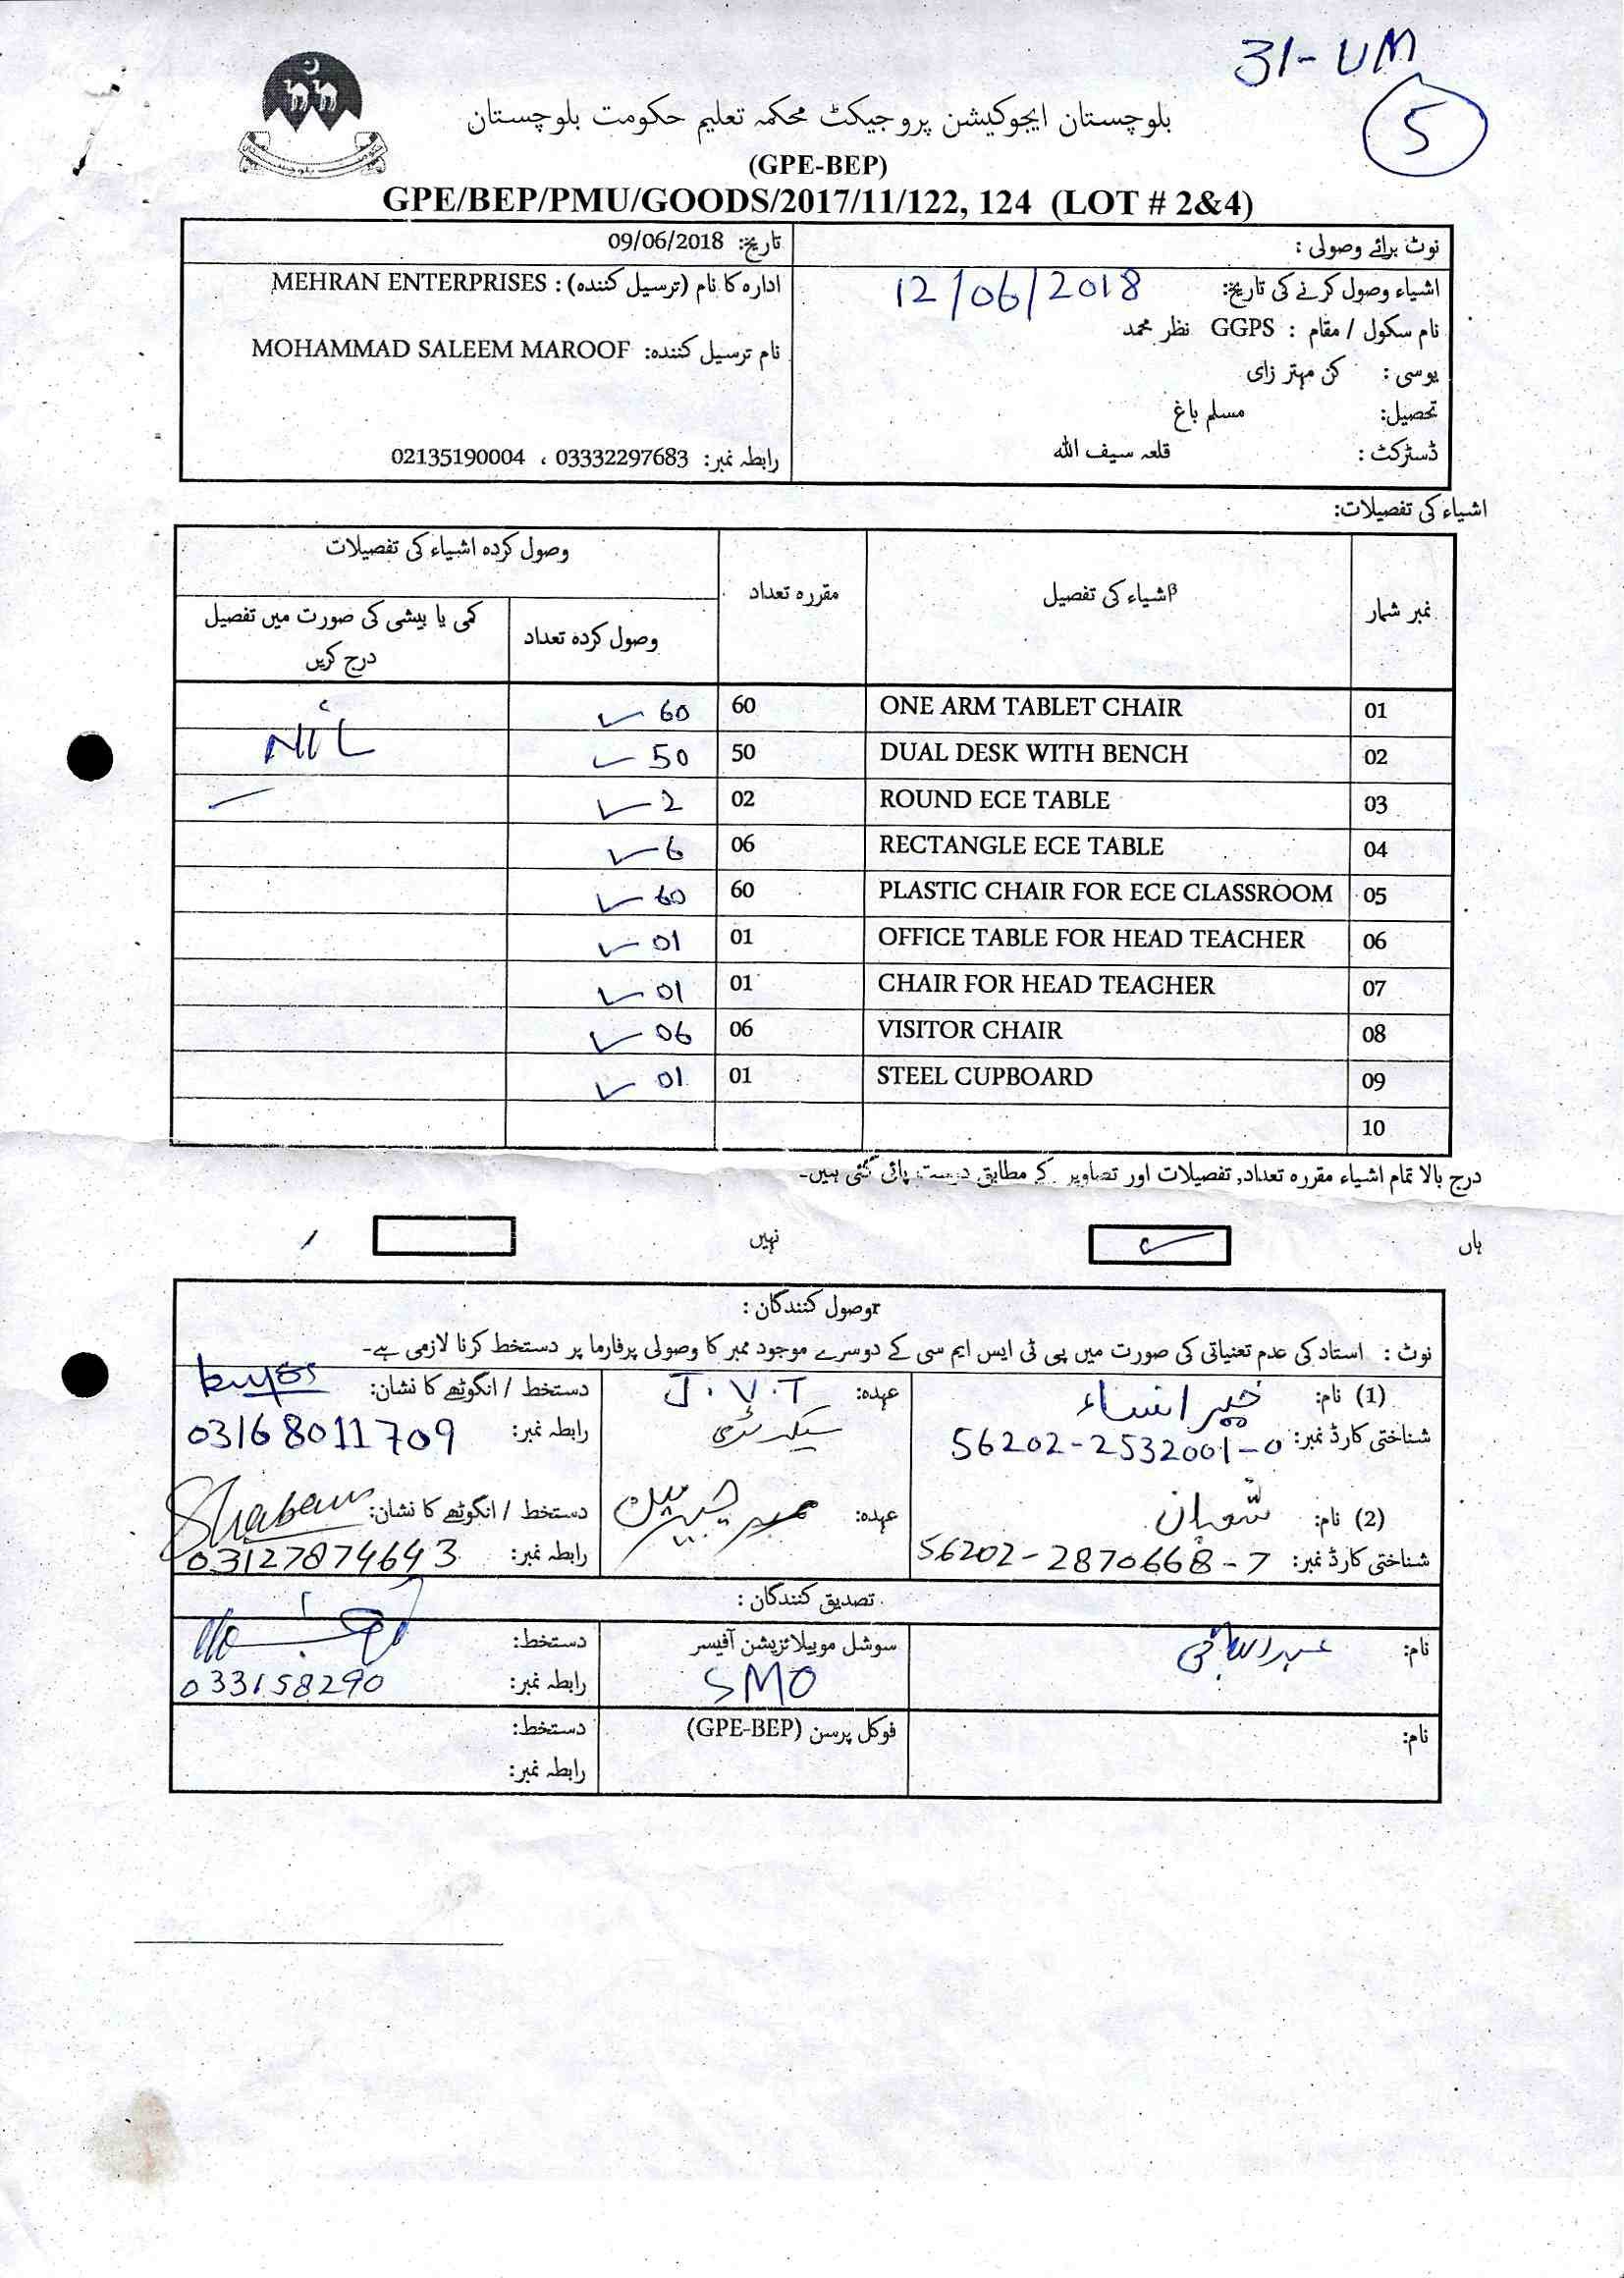 31-UM
5
بلوچستان ایجوکیشن پروجیکٹ محکمہ تعلیم حکومت بلوچستان
(GPE-BEP)
GPE/BEP/PMU/GOODS/2017/11/122, 124 (LOT # 2&4)
نوٹ برائے وصولی :
تاریخ: 09/06/2018
اشیاء وصول کرنے کی تاریخ: 12/06/2018
ادارہ کا نام (ترسیل کنندہ) : MEHRAN ENTERPRISES
نام سکول / مقام : GGPS نظر محمد
نام ترسیل کنندہ: MOHAMMAD SALEEM MAROOF
یوسی : کن مہتر زای
تحصیل: مسلم باغ
ڈسٹرکٹ : قلعہ سیف اللہ
رابطہ نمبر: 03332297683 ، 02135190004
اشیاء کی تفصیلات:
نمبر شمار βاشیاء کی تفصیل مقررہ تعداد وصول کردہ اشیاء کی تفصیلات
وصول کردہ تعداد کمی یا بیشی کی صورت میں تفصیل درج کریں
01 ONE ARM TABLET CHAIR 60 60
NIL
02 DUAL DESK WITH BENCH 50 50
03 ROUND ECE TABLE 02 2
04 RECTANGLE ECE TABLE 06 6
05 PLASTIC CHAIR FOR ECE CLASSROOM 60 60
06 OFFICE TABLE FOR HEAD TEACHER 01 01
07 CHAIR FOR HEAD TEACHER 01 01
08 VISITOR CHAIR 06 06
09 STEEL CUPBOARD 01 01
10
درج بالا تمام اشیاء مقررہ تعداد, تفصیلات اور تصاویر کے مطابق درست پائی گئی ہیں۔
ہاں نہیں
וوصول کنندگان :
نوٹ : استاد کی عدم تعنیاتی کی صورت میں پی ٹی ایس ایم سی کے دوسرے موجود ممبر کا وصولی پرفارما پر دستخط کرنا لازمی ہے۔
(1) نام: خیر انساء عہدہ: J.V.T دستخط / انگوٹھے کا نشان:
سیکرٹری
شناختی کارڈ نمبر: 56202-2532001-0 رابطہ نمبر: 03168011709
(2) نام: شعبان عہدہ: چیرمین دستخط / انگوٹھے کا نشان: Shaban
شناختی کارڈ نمبر: 56202-2870668-7 رابطہ نمبر: 03127874643
تصدیق کنندگان :
نام: عبدالباقی سوشل موبیلائزیشن آفیسر دستخط:
SMO رابطہ نمبر: 033158290
نام: فوکل پرسن (GPE-BEP) دستخط:
رابطہ نمبر: